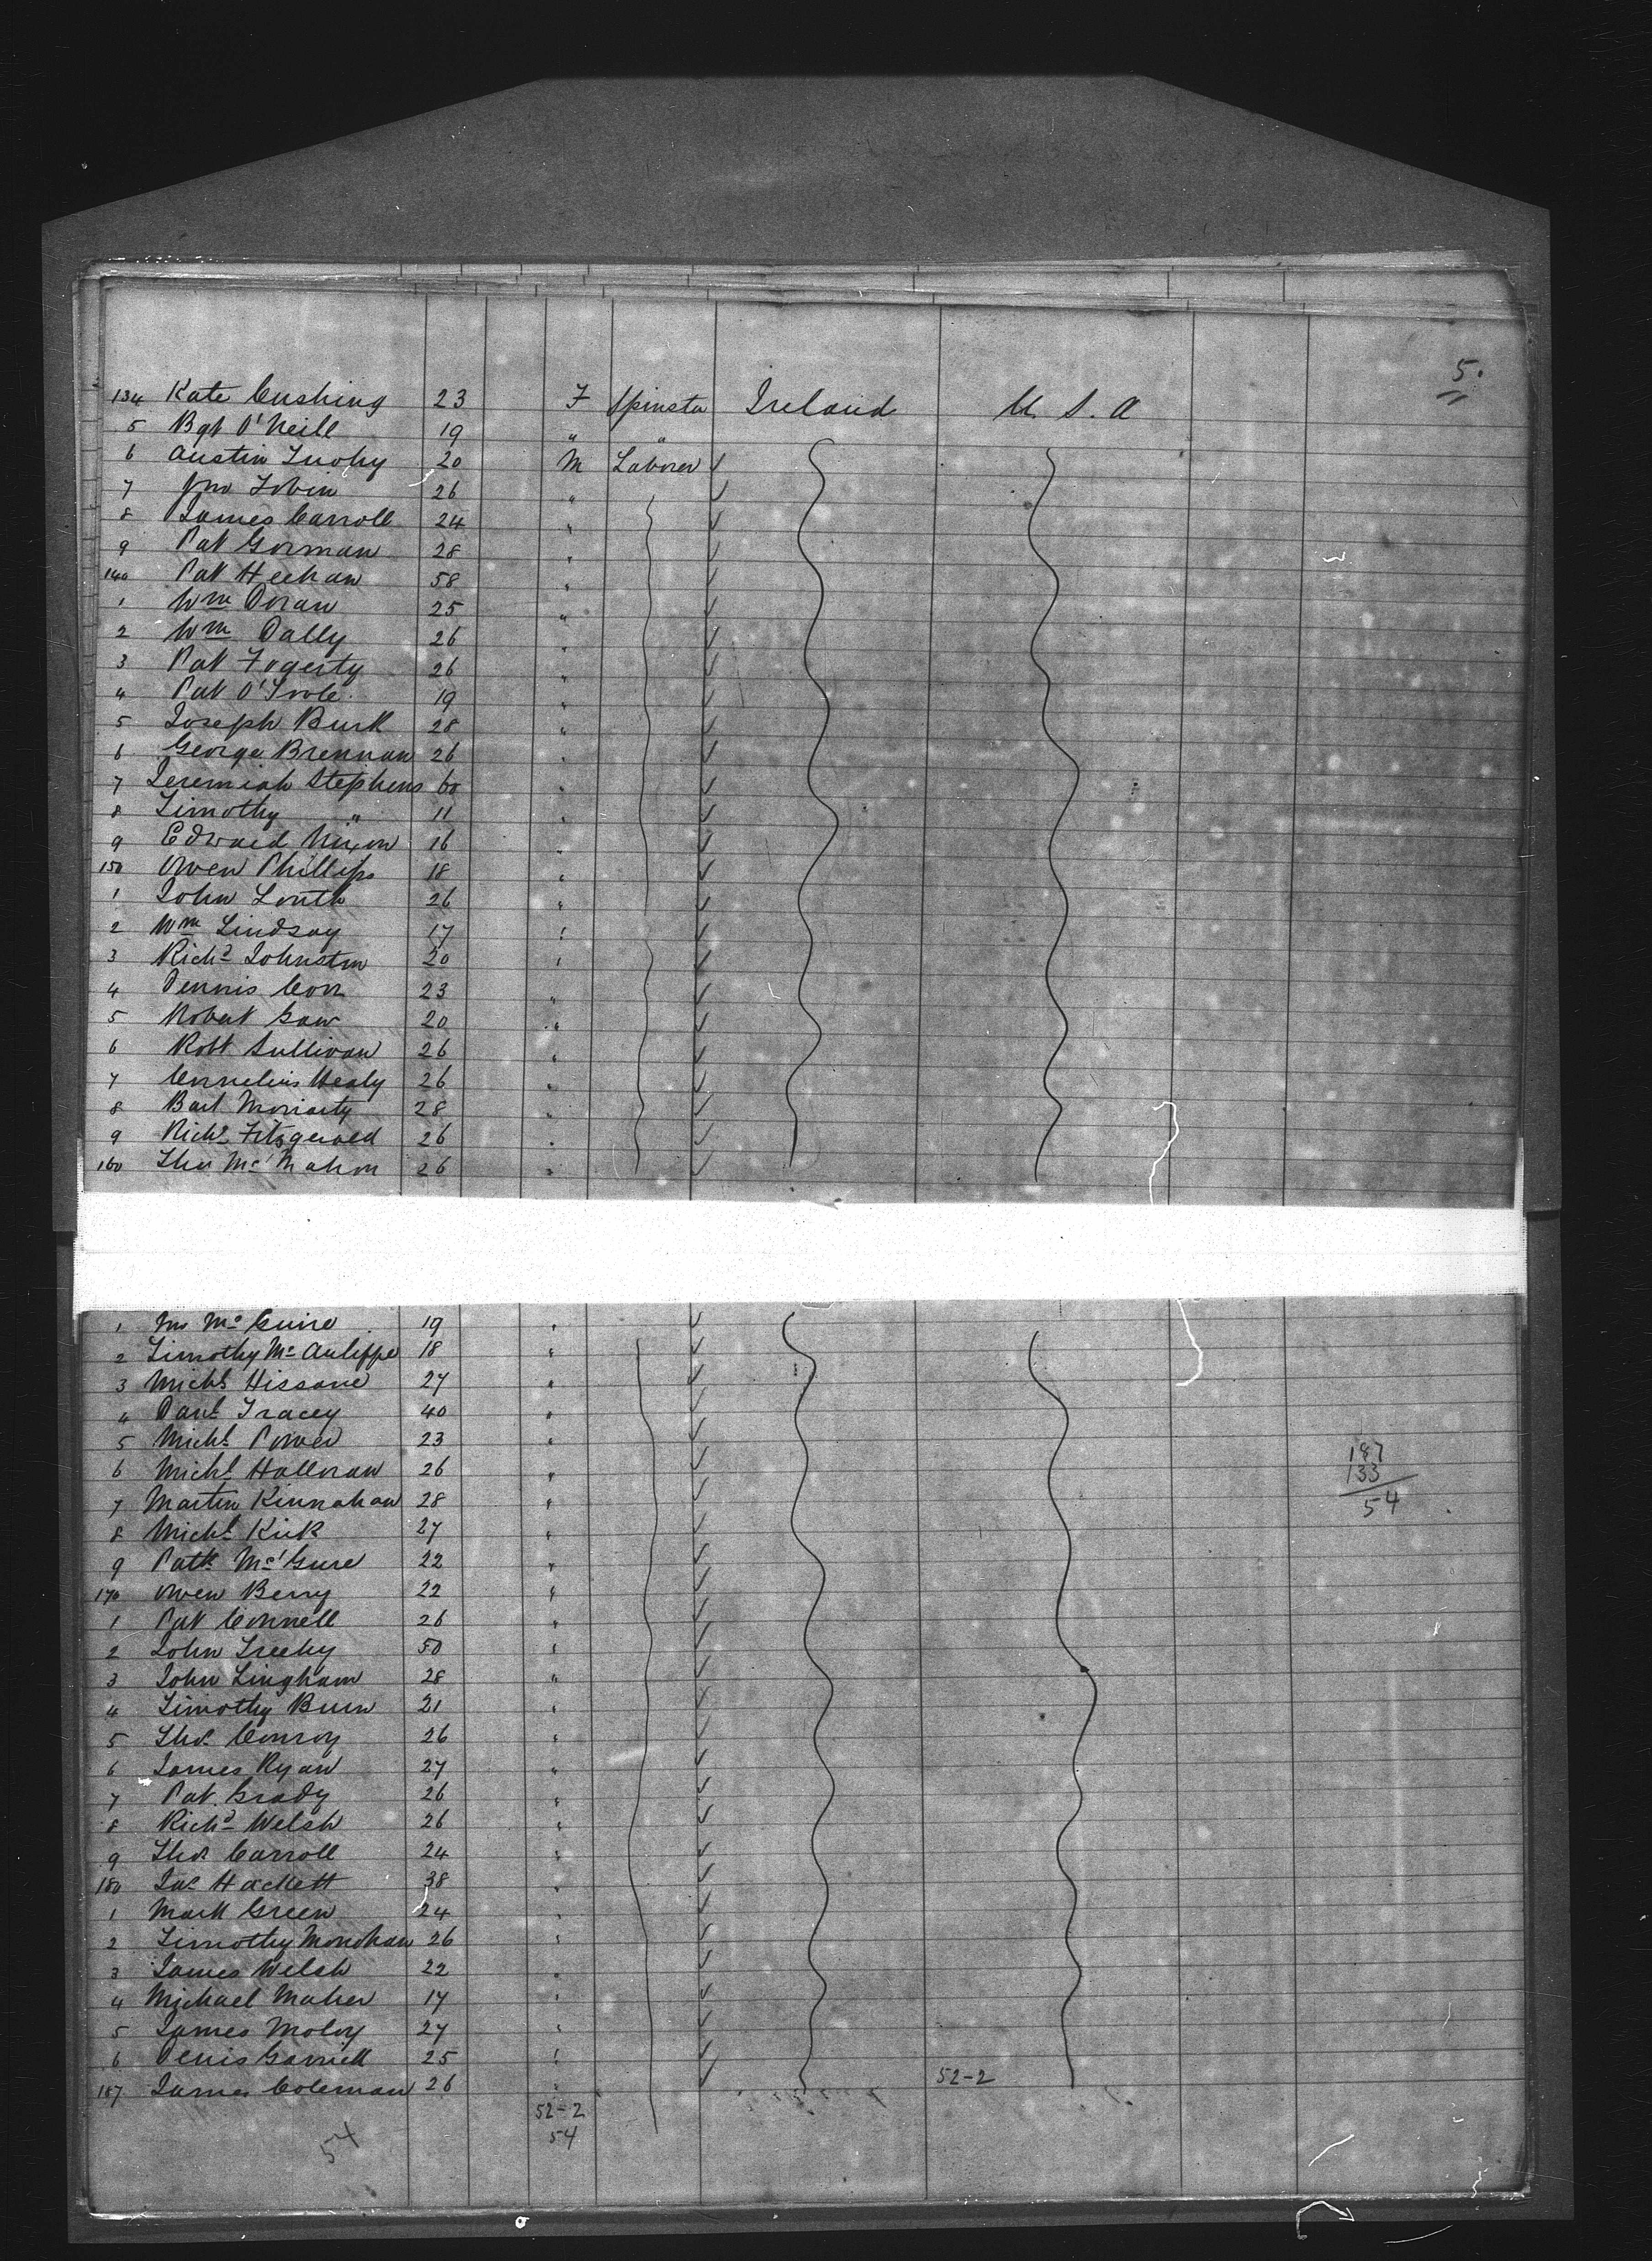 5.
134 Kate Cushing 23 F Spinster Ireland U. S. A
5 Bgt O'Neill 19 " "
6 Austin Tuohy 20 M Laborer ✓
7 Jno Tobin 26 " ✓
8 James Carroll 24 " ✓
9 Pat Gorman 28 " ✓
140 Pat Heehan 58 " ✓
1 Wm Doran 25 " ✓
2 Wm Dally 26 " ✓
3 Pat Fogerty 26 " ✓
4 Pat O'Toole 19 " ✓
5 Joseph Burk 28 " ✓
6 George Brennan 26 " ✓
7 Jeremiah Stephens 60 " ✓
8 Timothy " 11 " ✓
9 Edward Nixon 16 " ✓
150 Owen Phillips 18 " ✓
1 John Louth 26 " ✓
2 Wm Lindsay 17 " ✓
3 Richd Johnston 20 " ✓
4 Dennis Corr 23 " ✓
5 Robert Gaw 20 " ✓
6 Robt Sullivan 26 " ✓
7 Cornelius Healy 26 " ✓
8 Bart Moriarty 28 " ✓
9 Richd Fitzgerald 26 " ✓
160 Thos McMahon 26 " ✓
1 Jno McGuire 19 " ✓
2 Timothy McAuliffe 18 " ✓
3 Michl Hissane 27 " ✓
4 Danl Tracey 40 " ✓
5 Michl Power 23 " ✓
6 Michl Halloran 26 " ✓
187
133
54
7 Martin Kinnahan 28 " ✓
8 Michl Kirk 27 " ✓
9 Patk McGure 22 " ✓
170 Owen Berry 22 " ✓
1 Pat Connell 26 " ✓
2 John Treehy 50 " ✓
3 John Lingham 28 " ✓
4 Timothy Burn 21 " ✓
5 Thos Conroy 26 " ✓
6 James Ryan 27 " ✓
7 Pat. Grady 26 " ✓
8 Richd Welsh 26 " ✓
9 Thos Carroll 24 " ✓
180 Jas Hackett 38 " ✓
1 Mark Green 24 " ✓
2 Timothy Monohan 26 " ✓
3 James Welsh 22 " ✓
4 Michael Maher 17 " ✓
5 James Moloy 27 " ✓
6 Denis 25 " ✓
187 James Coleman 26 " ✓ 52-2
52-2
54
54